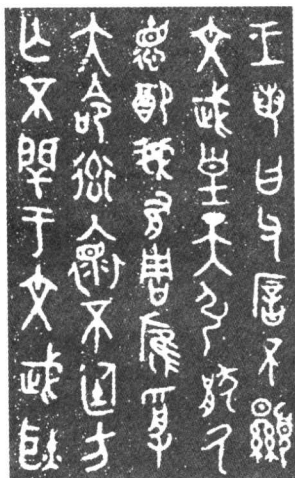 王若曰父厝不顯
文武皇天引猒氒
德配我有周膺受
大命率懷不廷方
亡不閈于文武耿